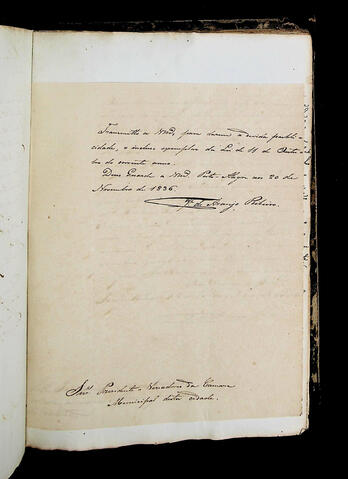 Transmitto a Vmces para darem a devida publi-
cidade, o incluso exemplar da Lei de 11 de Outu-
bro do corrente anno.
Deos Guarde a Vmces Porto Alegre aos 20 de
Novembro de 1836
de Araujo Ribeiro.
Snrs Presidente e Vereadores da Camara
Municipal desta cidade.